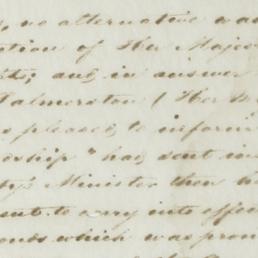 , no alternative was
ation of Her Majes
ts; and in answer
Palmerston (Her M
s pleased to inform
dship "had sent in
ty's Minister then
sent to carry into effec
onds which was prom